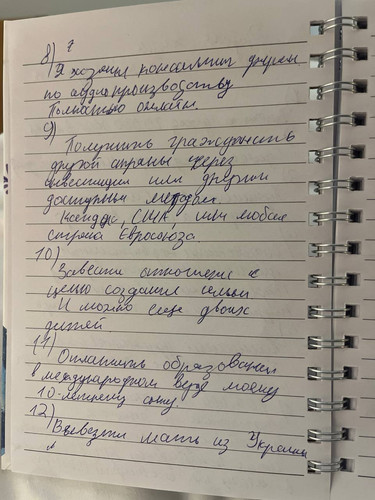 8) ?
Я хозяин консалтинг фирмы
по аудиопроизводству
Полностью онлайн.
9)
Получить гражданность
другой страны через
инвестиции или другим
доступным методом.
Канада, США, или любая
страна Евросоюза.
10)
Завести отношения с
целью создания семьи
И можно еще двоих
детей
11)
Оплатить образование
в международном вузе моему
10-летнему сыну.
12)
Вывезти мать из Украины